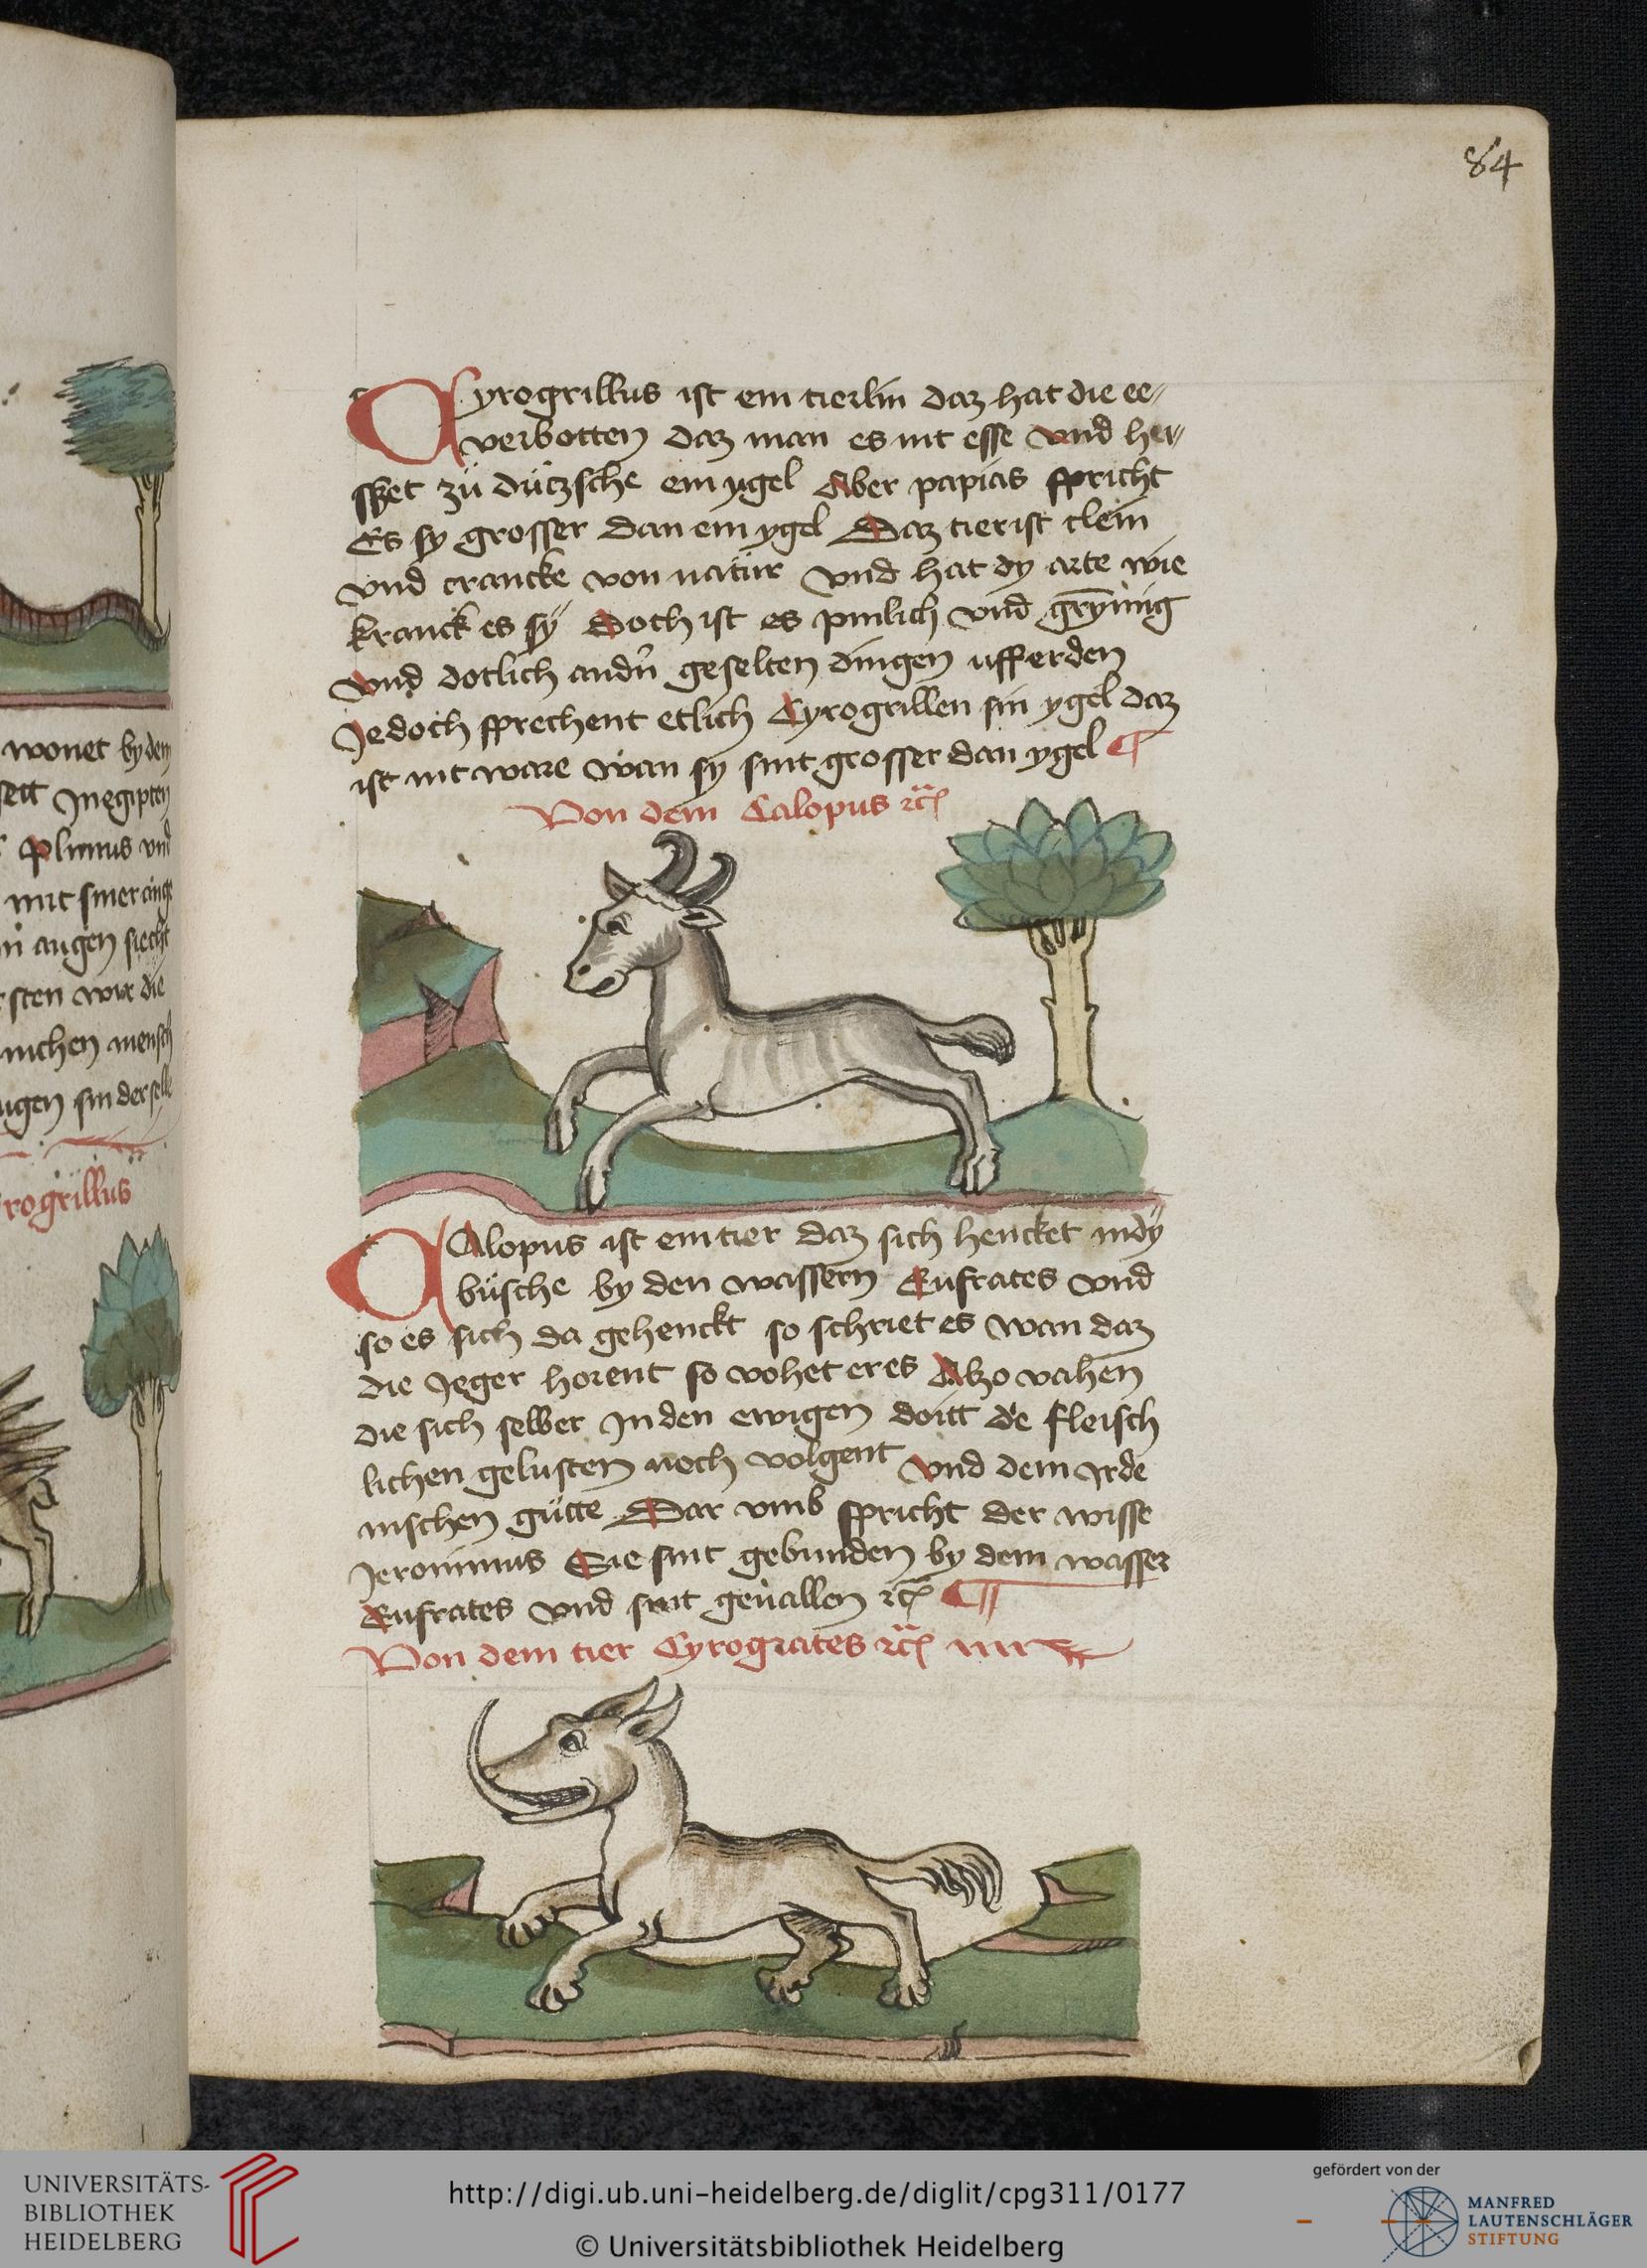 84
Cyrogrillus ist ein tierlin daz hat die ee
verbotten daz man es nit esse vnd hei
sset zü dützsche ein ygel Aber papias spricht
Es sy grosser dan ein ygel Daz tier ist clein
vnd crancke von natür vnd hat dy arte wie
kranck es sy Doch ist es pinlich vnd
vnd dotlich andn geselten dingen uff erden
Jedoch sprechent etlich Cyrogrillen sin ygel daz
ist nit ware wan sy sint grosser dan ygel
Von dem Calopus
CAlopus ist ein tier daz sich hencket in dy
büsche by den wassern Eufrates vnd
so es sich da gehenckt so schriet es wan daz
die Jeger horent so vohet er es Also vahen
die sich selber Jn den ewigen doitt die fleisch
lichen gelusten noch volgent vnd dem Jrde
nischen gütte Dar vmb spricht der wisse
Jeronimus Sie sint gebunden by dem wasser
Eufrates vnd sint geuallen
Von dem tier Cyrogrates
wonet by dem
Jn egipten
Plinius vnd
mit siner
augen siecht
sten wir die
menschen
ugen sin der selbe
rogrillus
UNIVERSITÄTS-
BIBLIOTHEK
HEIDELBERG
http://digi.ub.uni-heidelberg.de/diglit/cpg311/0177
© Universitätsbibliothek Heidelberg
gefördert von der
MANFRED
LAUTENSCHLÄGER
STIFTUNG